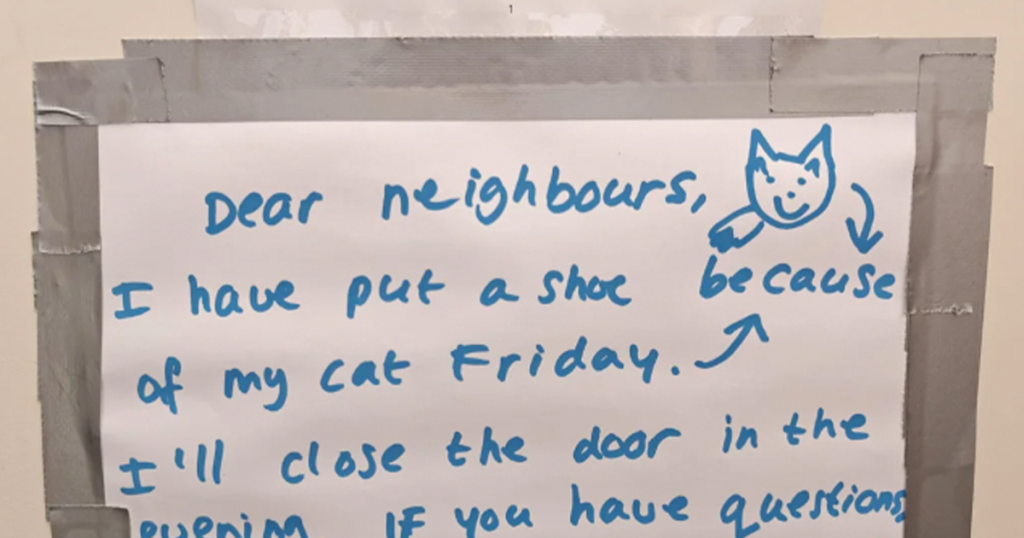 1
Dear neighbours,
I have put a shoe because
of my cat Friday.
I'll close the door in the
evening. If you have questions,